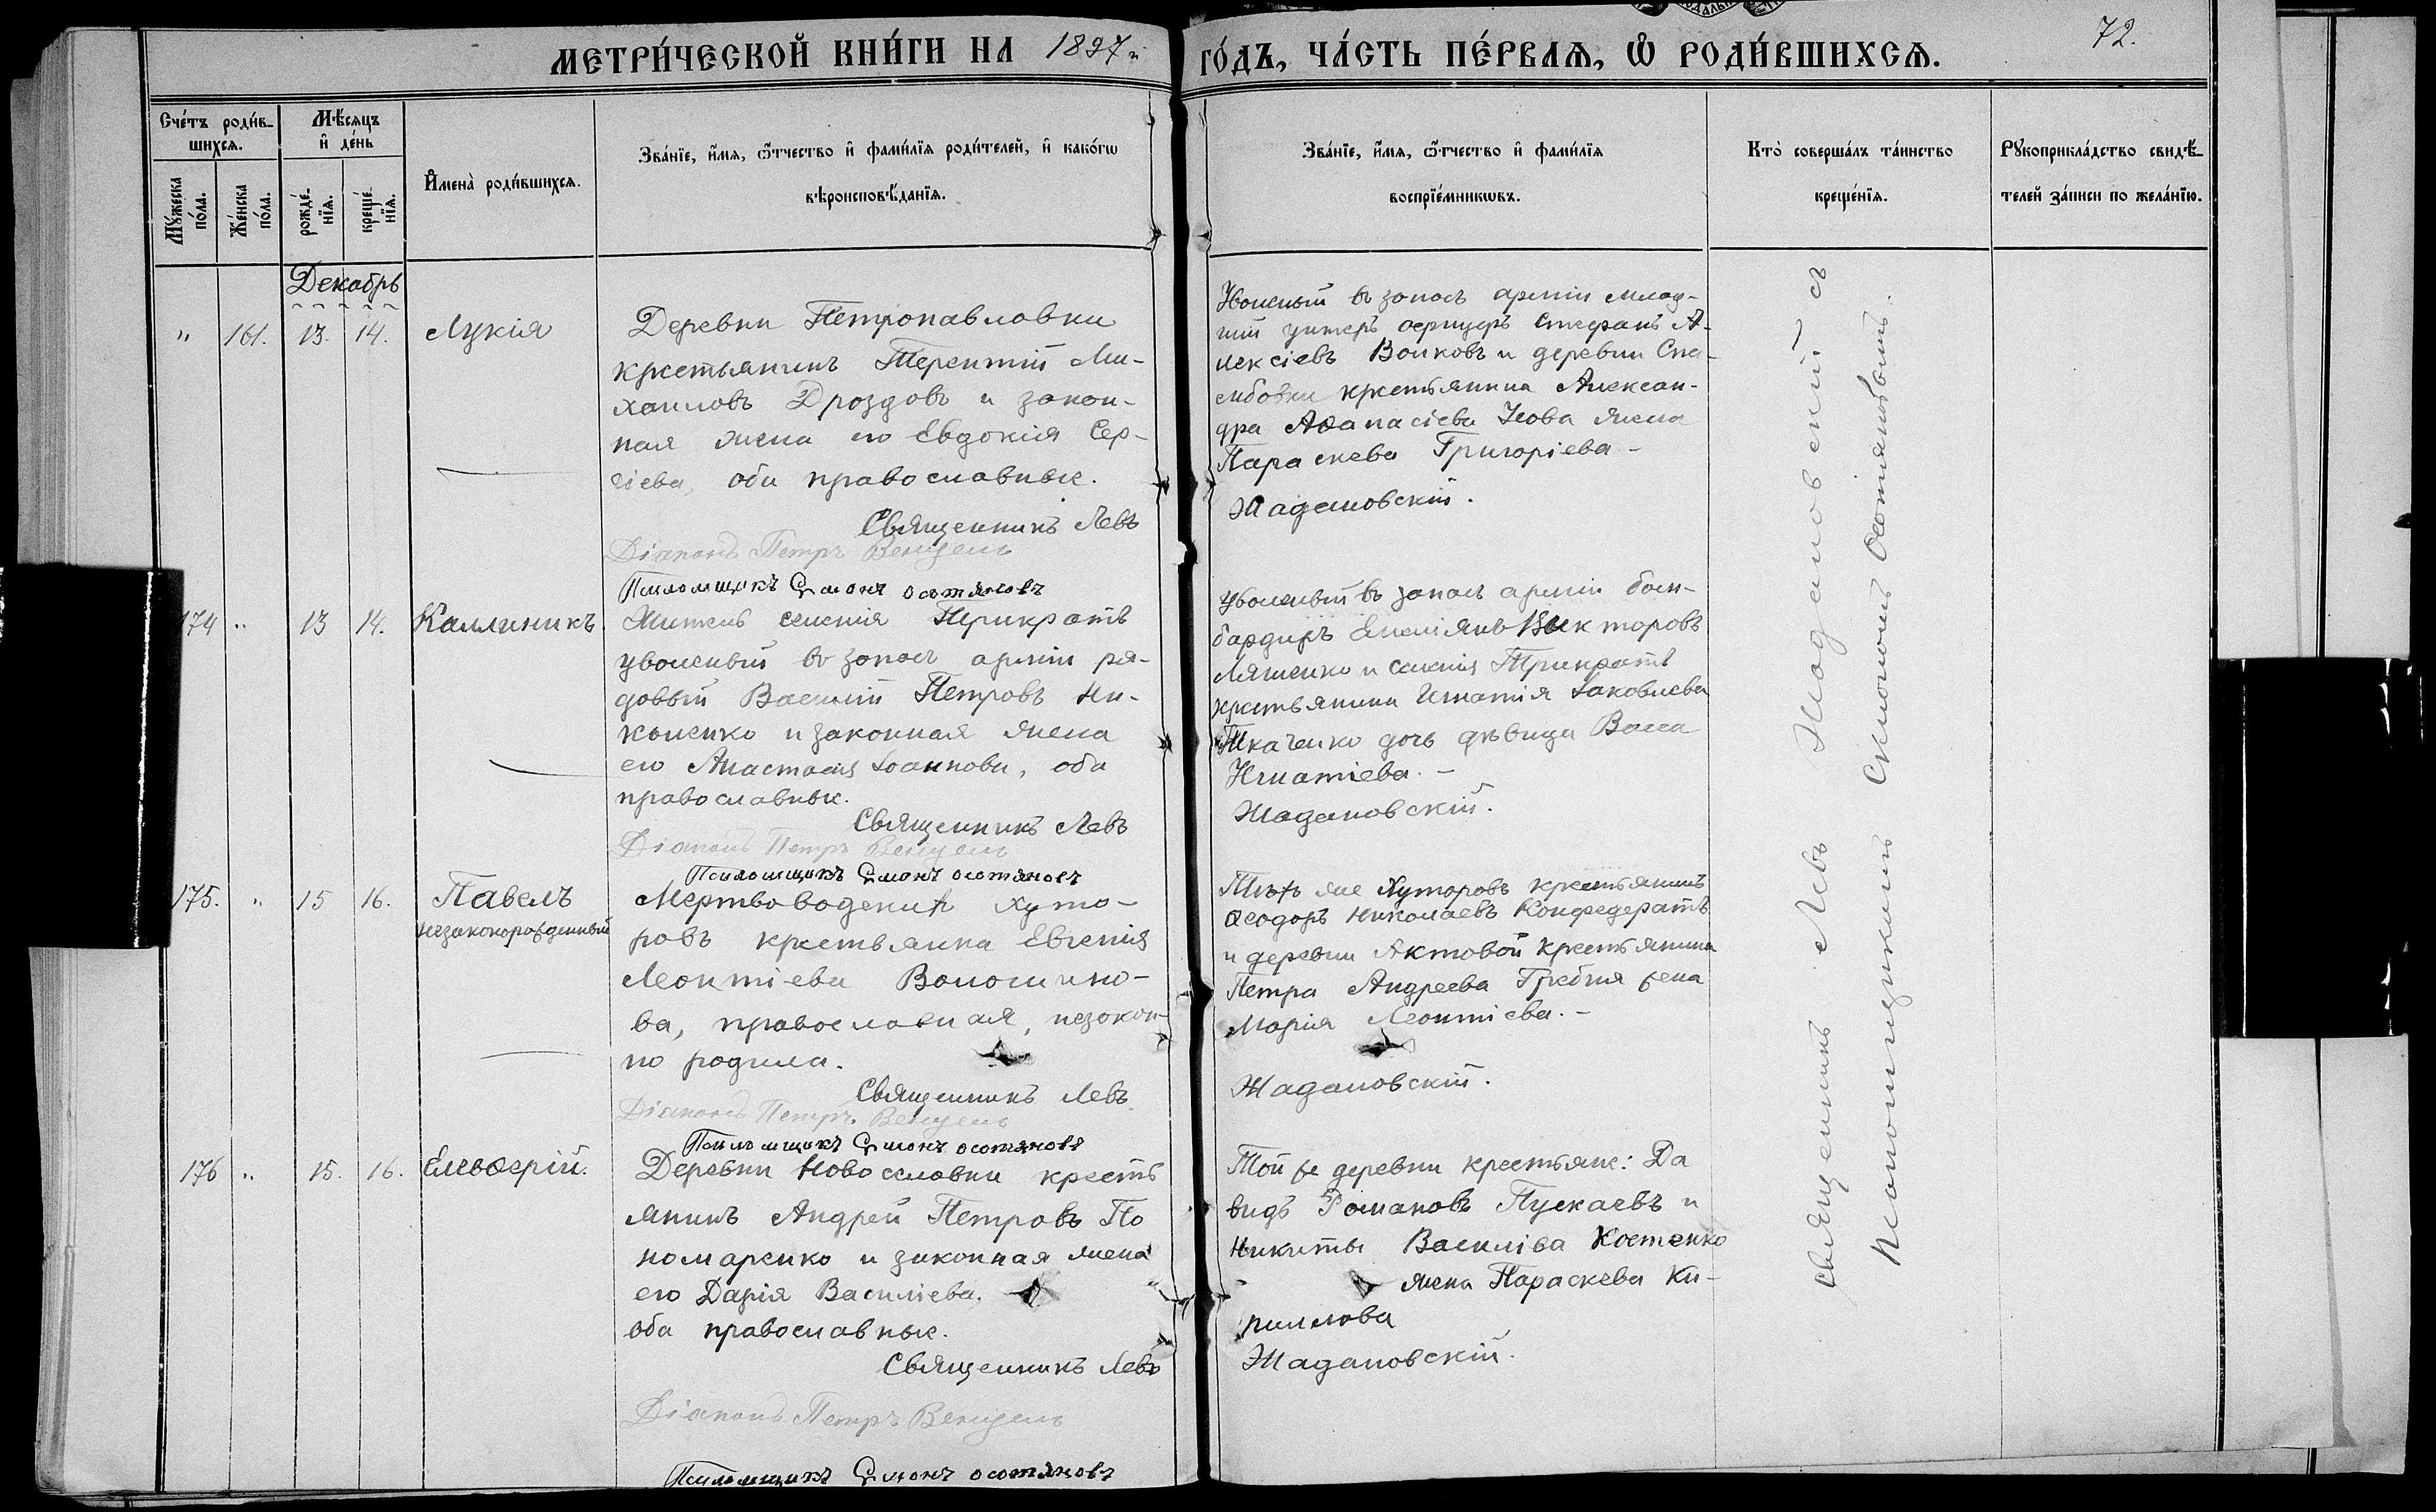 МЕТРИ́ЧЕСКОЙ КНИ́ГИ НА 1897й ГО́ДЪ, ЧА́СТЬ ПЕ́РВАѦ, Ѿ РОДИ́ВШИХСѦ.
72.
Сче́тъ роди́в-
шихсѧ.
Мѣ́сѧцъ
и҆ де́нь
Мꙋ́жеска
по́ла.
Же́нска
по́ла.
рожде́-
нїѧ.
креще́-
нїѧ.
И҆мена̀ роди́вшихсѧ.
Зва́нїе, и҆́мѧ, ѻ҆́тчество и҆ фами́лїѧ роди́телей, и҆ како́гѡ
вѣроисповѣ́данїѧ.
Зва́нїе, и҆́мѧ, ѻ҆́тчество и҆ фами́лїѧ
воспрїе́мникѡвъ.
Кто̀ соверша́лъ та́инство
креще́нїѧ.
Рꙋкоприкла́дство свидѣ́-
телей за́писи по жела́нїю.
Декабрь
" 161. 13. 14. Лукія
Деревни Петропавловки
крестьянинъ Терентій Ми-
хаиловъ Дроздовъ и закон-
ная жена его Евдокія Сер-
гіева, оба православные.
Священникъ Левъ
Діаконъ Петръ Венцель
Псаломщикъ Симонъ Осотяновъ
Уволеный въ запасъ арміи млад-
шій унтеръ офицеръ Стефанъ А-
лексіевъ Волковъ и деревни
крестьянина Алексан-
дра Аѳанасіева жена
Параскева Григоріева -
Жадановскій.
174 " 13 14. Каллиникъ
Житель селенія Трикратъ
уволеный въ запасъ арміи ря-
довый Василій Петровъ Ни-
коленко и законная жена
его Анастасія Іоаннова, оба
православные.
Священникъ Левъ
Діаконъ Петръ Венцель
Псаломщикъ Симонъ Осотяновъ
Уволеный въ запасъ арміи бом-
бардиръ Емеліянъ Викторовъ
Ляшенко и селенія Трикратъ
крестьянина Игнатія Іаковлева
Ткаченко дочь дѣвица Васса
Игнатіева. -
Жадановскій.
175. " 15 16. Павелъ
незаконорожденный
Мертвоводскихъ хуто-
ровъ крестьянка Евгенія
Леонтіева Волошино-
ва, православная, незакон-
но родила.
Священникъ Левъ
Діаконъ Петръ Венцель
Псаломщикъ Симонъ Осотяновъ
Тѣхъ же хуторовъ крестьянинъ
Ѳеодоръ Николаевъ Конфедератъ
и деревни Актовой крестьянина
Петра Андреева Гребня жена
Марія Леонтіева. -
Жадановскій.
176 " 15. 16. Елевѳерій.
Деревни Новоселовки кресть
янинъ Андрей Петровъ По
номаренко и законная жена
его Дарія Василіева.
оба православные.
Священникъ Левъ
Діаконъ Петръ Венцель
Псаломщикъ Симонъ Осотяновъ
Той же деревни крестьяне: Да
видъ Романовъ Пускачъ и
Никиты Василіва Костенко
жена Параскева Ки-
риллова
Жадановскій.
Священникъ Левъ Жадановскій съ
псаломщикомъ Симономъ Осотяновымъ.